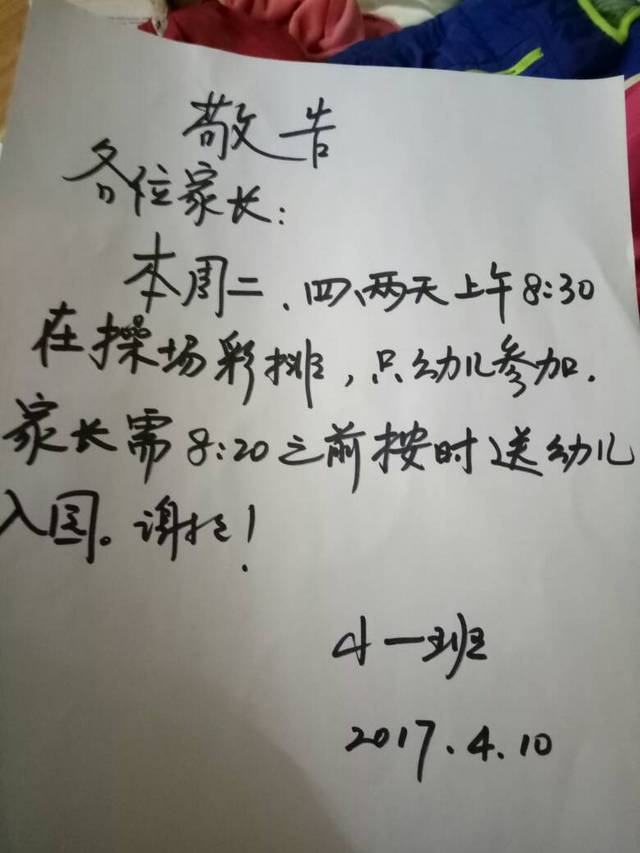 敬告
各位家长:
本周二、四、两天上午8:30
在操场彩排,只幼儿参加.
家长需8:20之前按时送幼儿
入园。谢拉!
小一班
2017.4.10